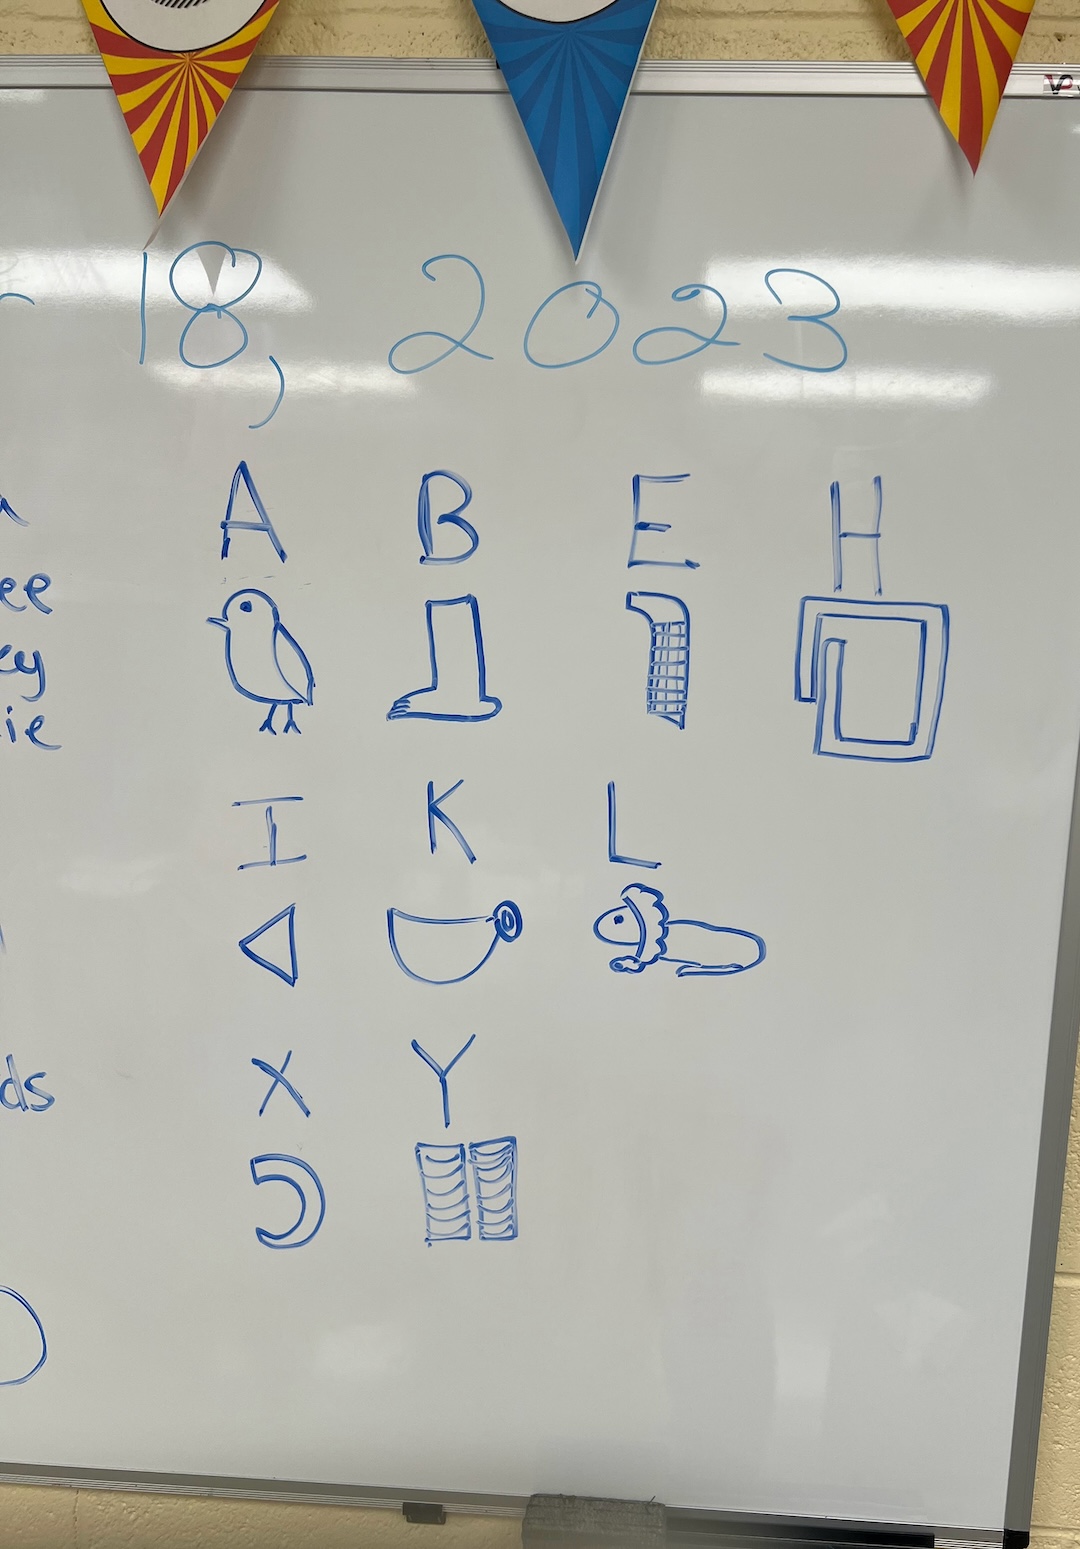 18, 2023
A B E H
ee
ey
ie
I K L
ds
X Y